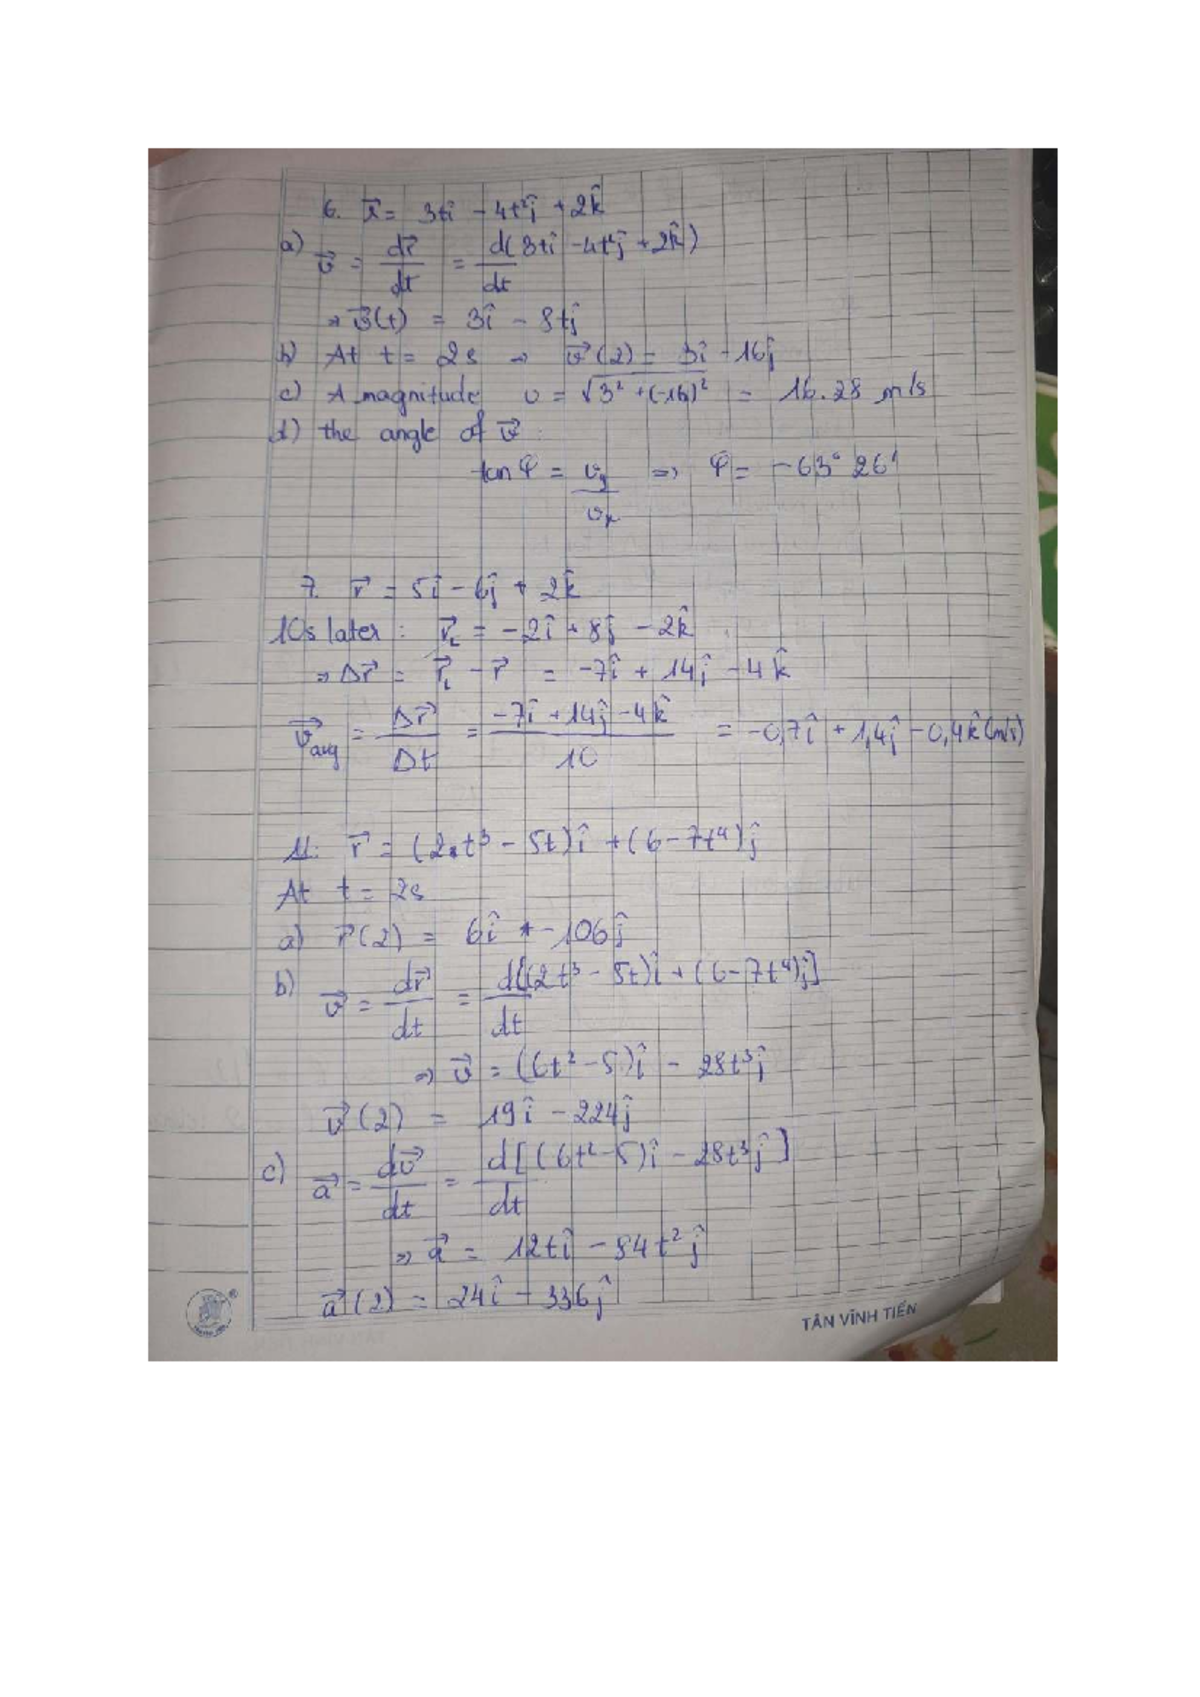 6. r⃗ = 3tî - 4t²ĵ + 2k̂
a) v⃗ = dr⃗/dt = d(3tî - 4t²ĵ + 2k̂)/dt
⇒ v⃗(t) = 3î - 8tĵ
b) At t = 2s → v⃗(2) = 3î - 16ĵ
c) A magnitude v = √3² + (-16)² = 16.28 m/s
d) the angle of v⃗:
tan φ = v_y/v_x ⇒ φ = -63° 26'
7. r⃗ = 5î - 6ĵ + 2k̂
10s later: r⃗₂ = -2î + 8ĵ - 2k̂
⇒ Δr⃗ = r⃗₂ - r⃗ = -7î + 14ĵ - 4k̂
v⃗avg = Δr⃗/Δt = -7î + 14ĵ - 4k̂/10 = -0,7î + 1,4ĵ - 0,4k̂ (m/s)
11. r⃗ = (2.t³ - 5t)î + (6 - 7t⁴)ĵ
At t = 2s
a) r⃗(2) = 6î - 106ĵ
b) v⃗ = dr⃗/dt = d[(2t³ - 5t)î + (6 - 7t⁴)ĵ]/dt
⇒ v⃗ = (6t² - 5)î - 28t³ĵ
v⃗(2) = 19î - 224ĵ
c) a⃗ = dv⃗/dt = d[(6t² - 5)î - 28t³ĵ]/dt
⇒ a⃗ = 12tî - 84t²ĵ
a⃗(2) = 24î - 336ĵ
TÂN VĨNH TIẾN